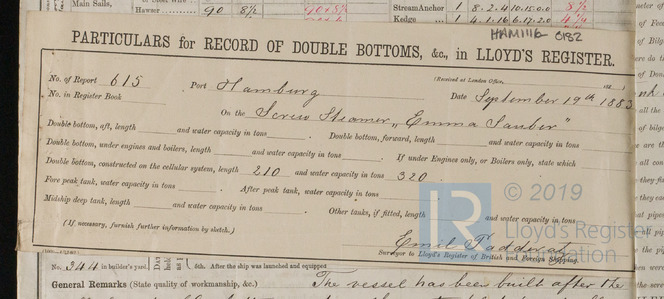 Main Sails,
Hawser 90 8½
Stream Anchor 1 8.2.4 10.15.0.0 8½
Kedge 1 4.1.16 6.17.2.0 4¼
HAM1116 0182
PARTICULARS for RECORD OF DOUBLE BOTTOMS, &c., in LLOYD'S REGISTER.
(Received at London Office,
No. of Report 615 Port Hamburg
No. in Register Book Date September 19th 1883
On the Screw Steamer "Emma Sauber"
Double bottom, aft, length and water capacity in tons . Double bottom, forward, length and water capacity in tons
Double bottom, under engines and boilers, length and water capacity in tons . If under Engines only, or Boilers only, state which
Double bottom, constructed on the cellular system, length 210 and water capacity in tons 320
Fore peak tank, water capacity in tons . After peak tank, water capacity in tons
Midship deep tank, length and water capacity in tons . Other tanks, if fitted, length and water capacity in tons
(If necessary, furnish further information by sketch.)
LR © 2019
Lloyd's Register
Foundation
Emil Padderatz
Surveyor to Lloyd's Register of British and Foreign Shipping.
No. 344 in builder's yard. 5th. After the ship was launched and equipped
General Remarks (State quality of workmanship, &c.) The vessel has been built after the